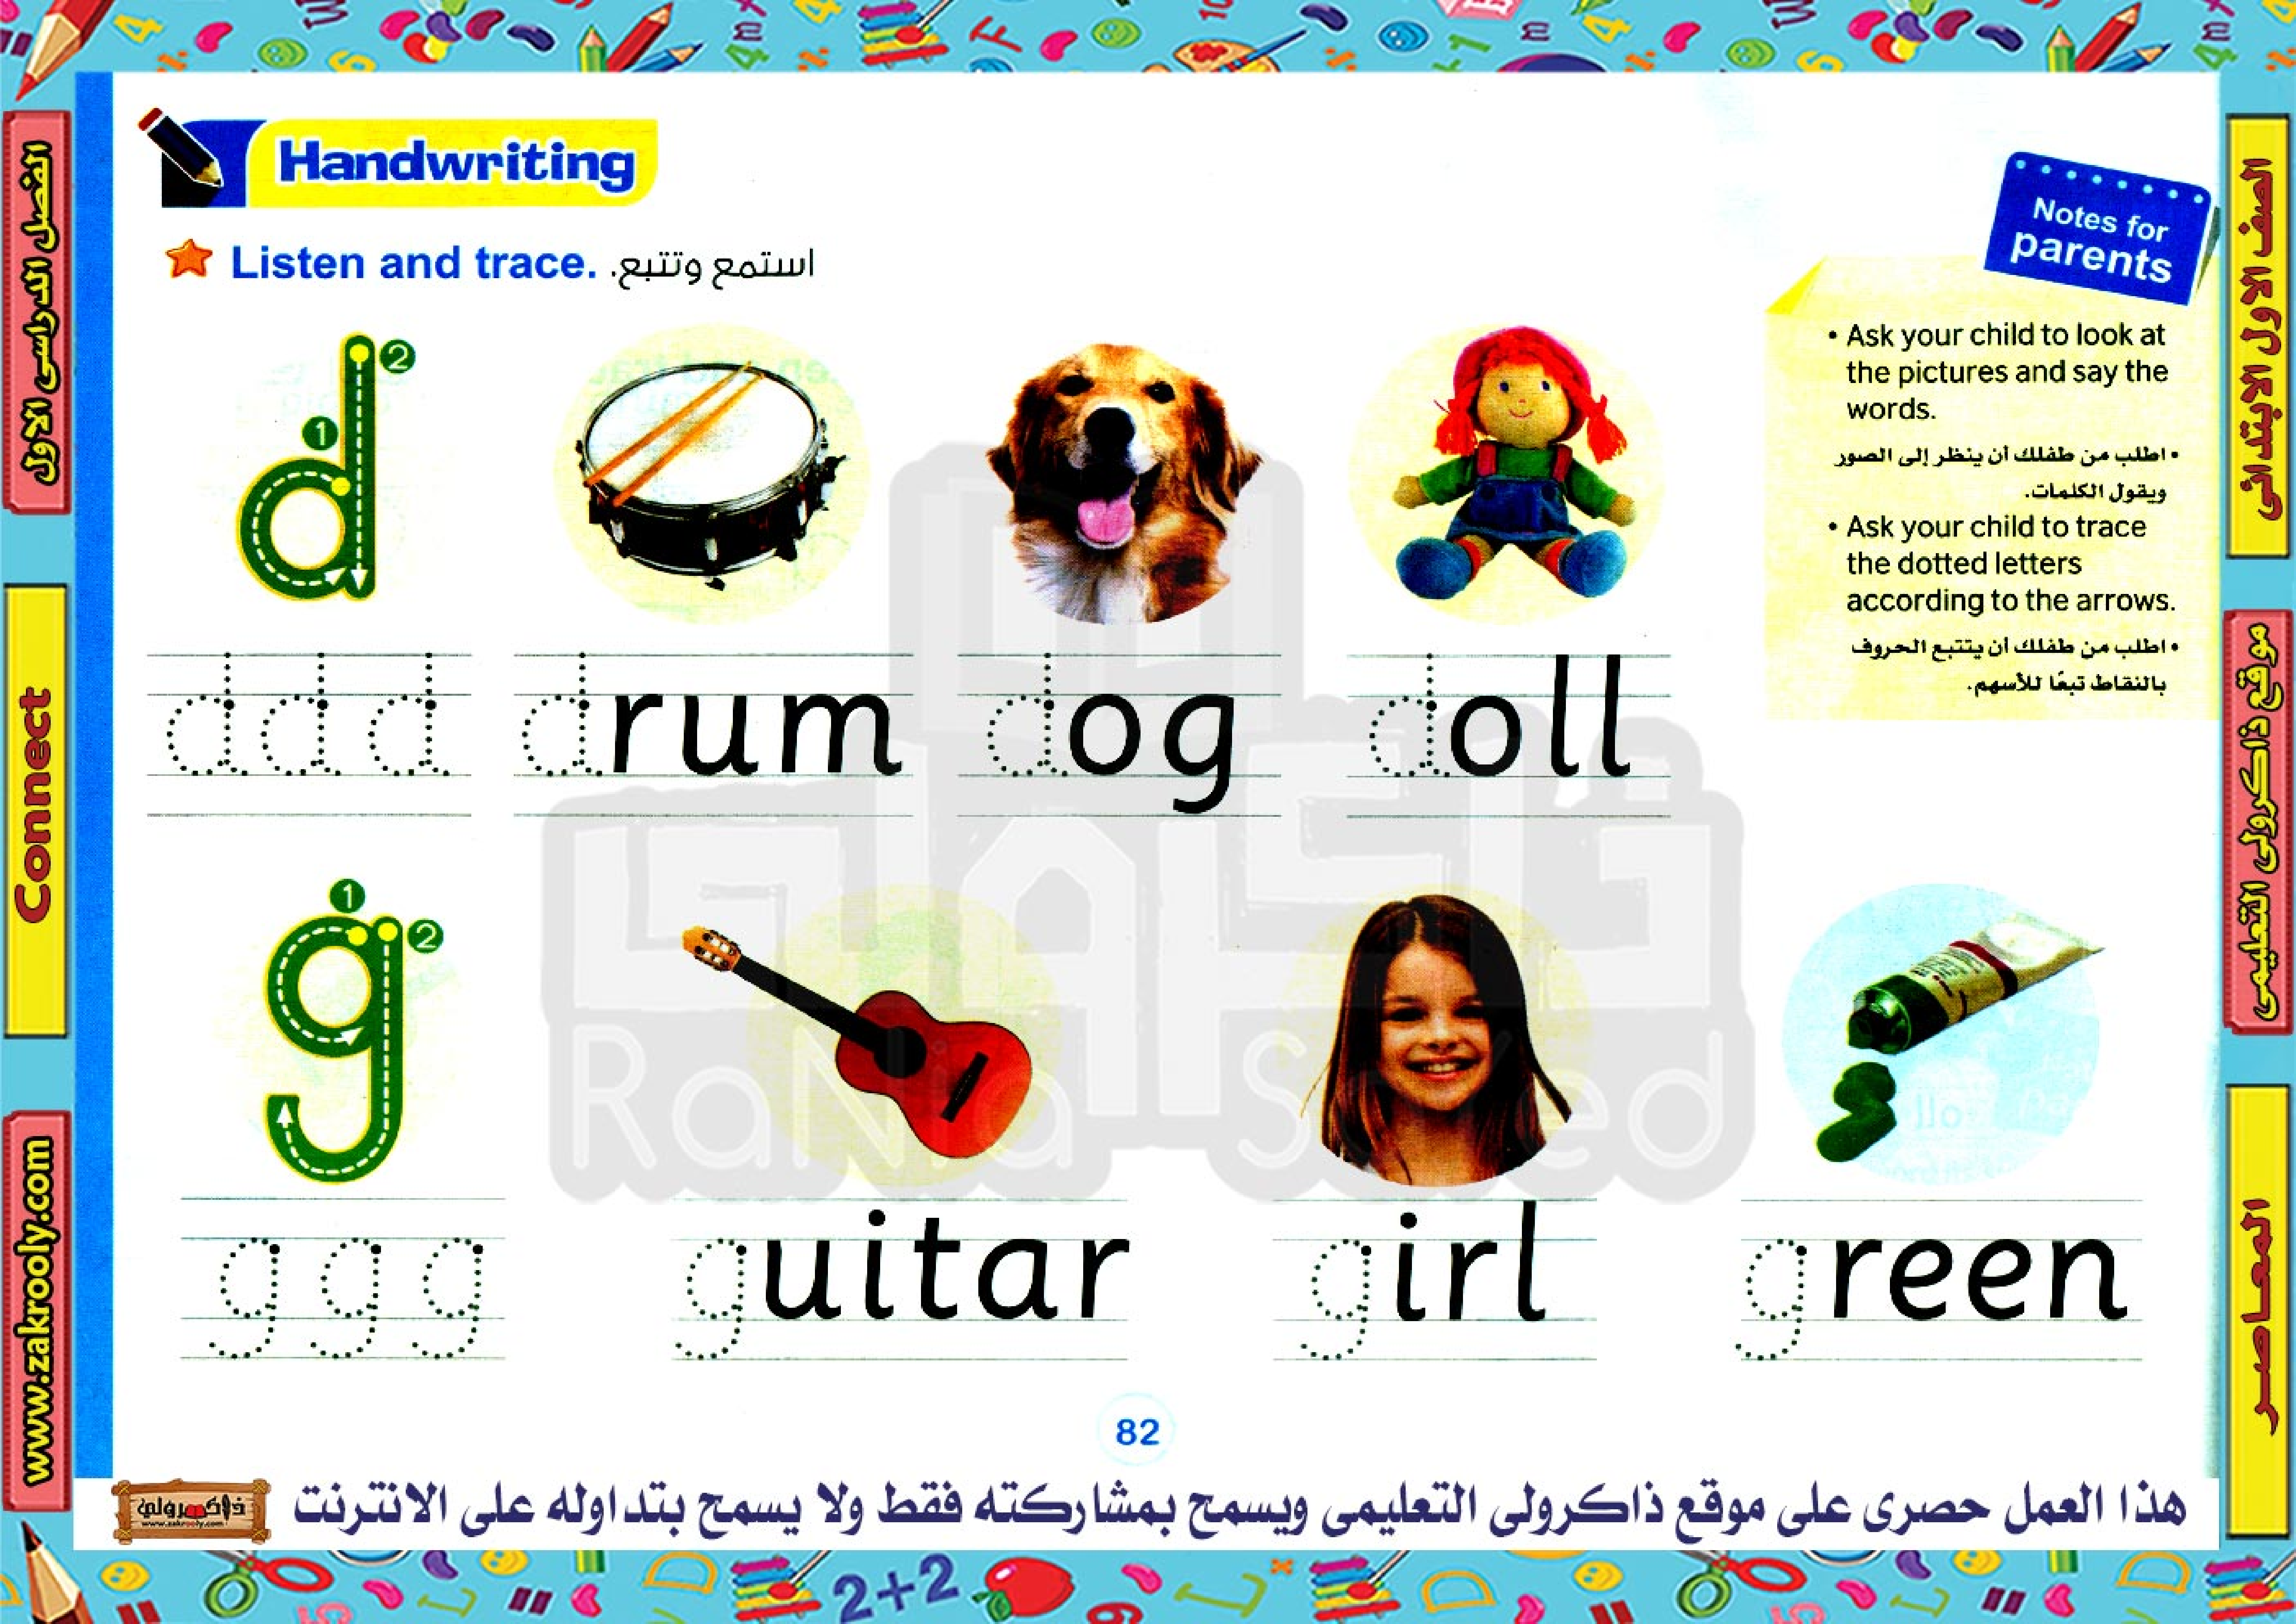 Handwriting
Listen and trace. استمع وتتبع.
Notes for
parents
• Ask your child to look at
the pictures and say the
words.
• اطلب من طفلك أن ينظر إلى الصور
ويقول الكلمات.
• Ask your child to trace
the dotted letters
according to the arrows.
• اطلب من طفلك أن يتتبع الحروف
بالنقاط تبعًا للأسهم.
d 1 2
d d d drum dog doll
g 1 2
g g g guitar girl green
82
هذا العمل حصرى على موقع ذاكرولى التعليمى ويسمح بمشاركته فقط ولا يسمح بتداوله على الانترنت
ذاكرولي
www.zakrooly.com
الفصل الدراسى الاول
Connect
www.zakrooly.com
الصف الاول الابتدائى
موقع ذاكرولى التعليمى
المعاصر
ذاكرولى
RaNia Sayed
2+2